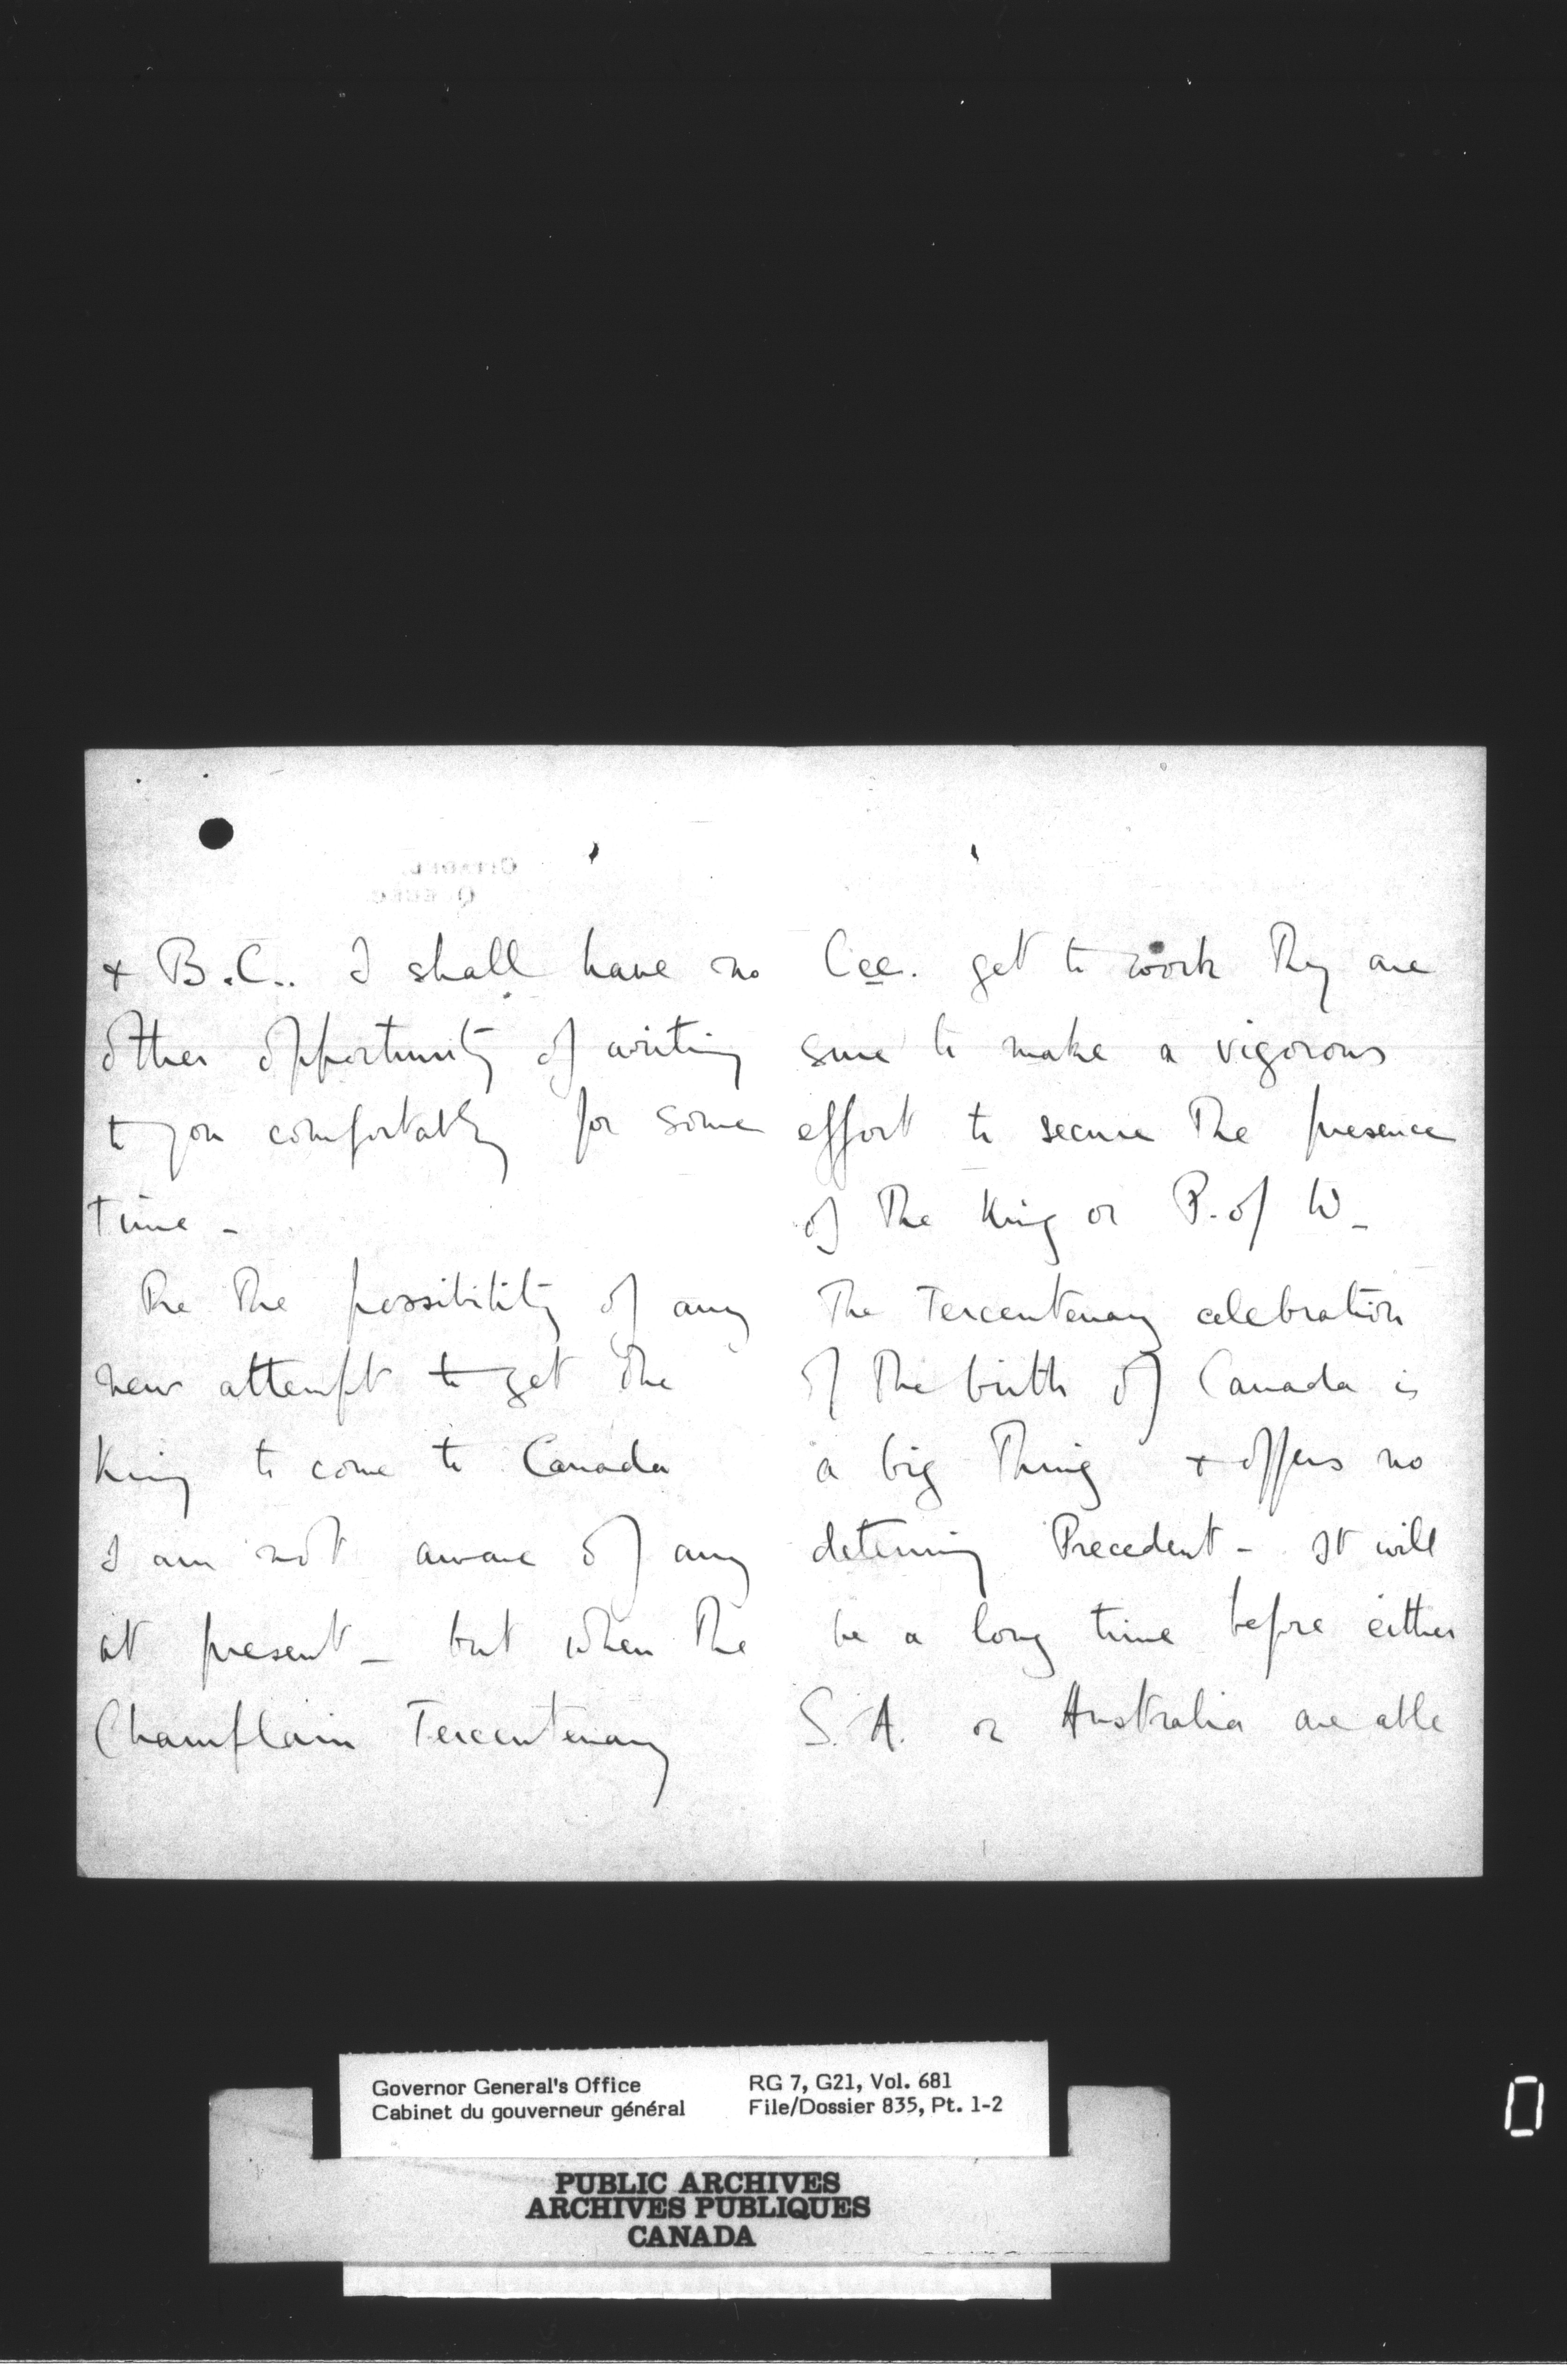 + B.C.. I shall have no
other opportunity of writing
to you comfortably for some
time -
Re the possibility of any
new attempt to get the
King to come to Canada
I am not aware of any
at present - but when the
Champlain Tercentenary
Cee. get to work they are
sure to make a vigorous
effort to secure the presence
of the King or P. of W -
The Tercentenary celebration
of the birth of Canada is
a big thing + offers no
deterring Precedent - It will
be a long time before either
S.A. or Australia are able
Governor General's Office
Cabinet du gouverneur général
RG 7, G21, Vol. 681
File/Dossier 835, Pt. 1-2
PUBLIC ARCHIVES
ARCHIVES PUBLIQUES
CANADA